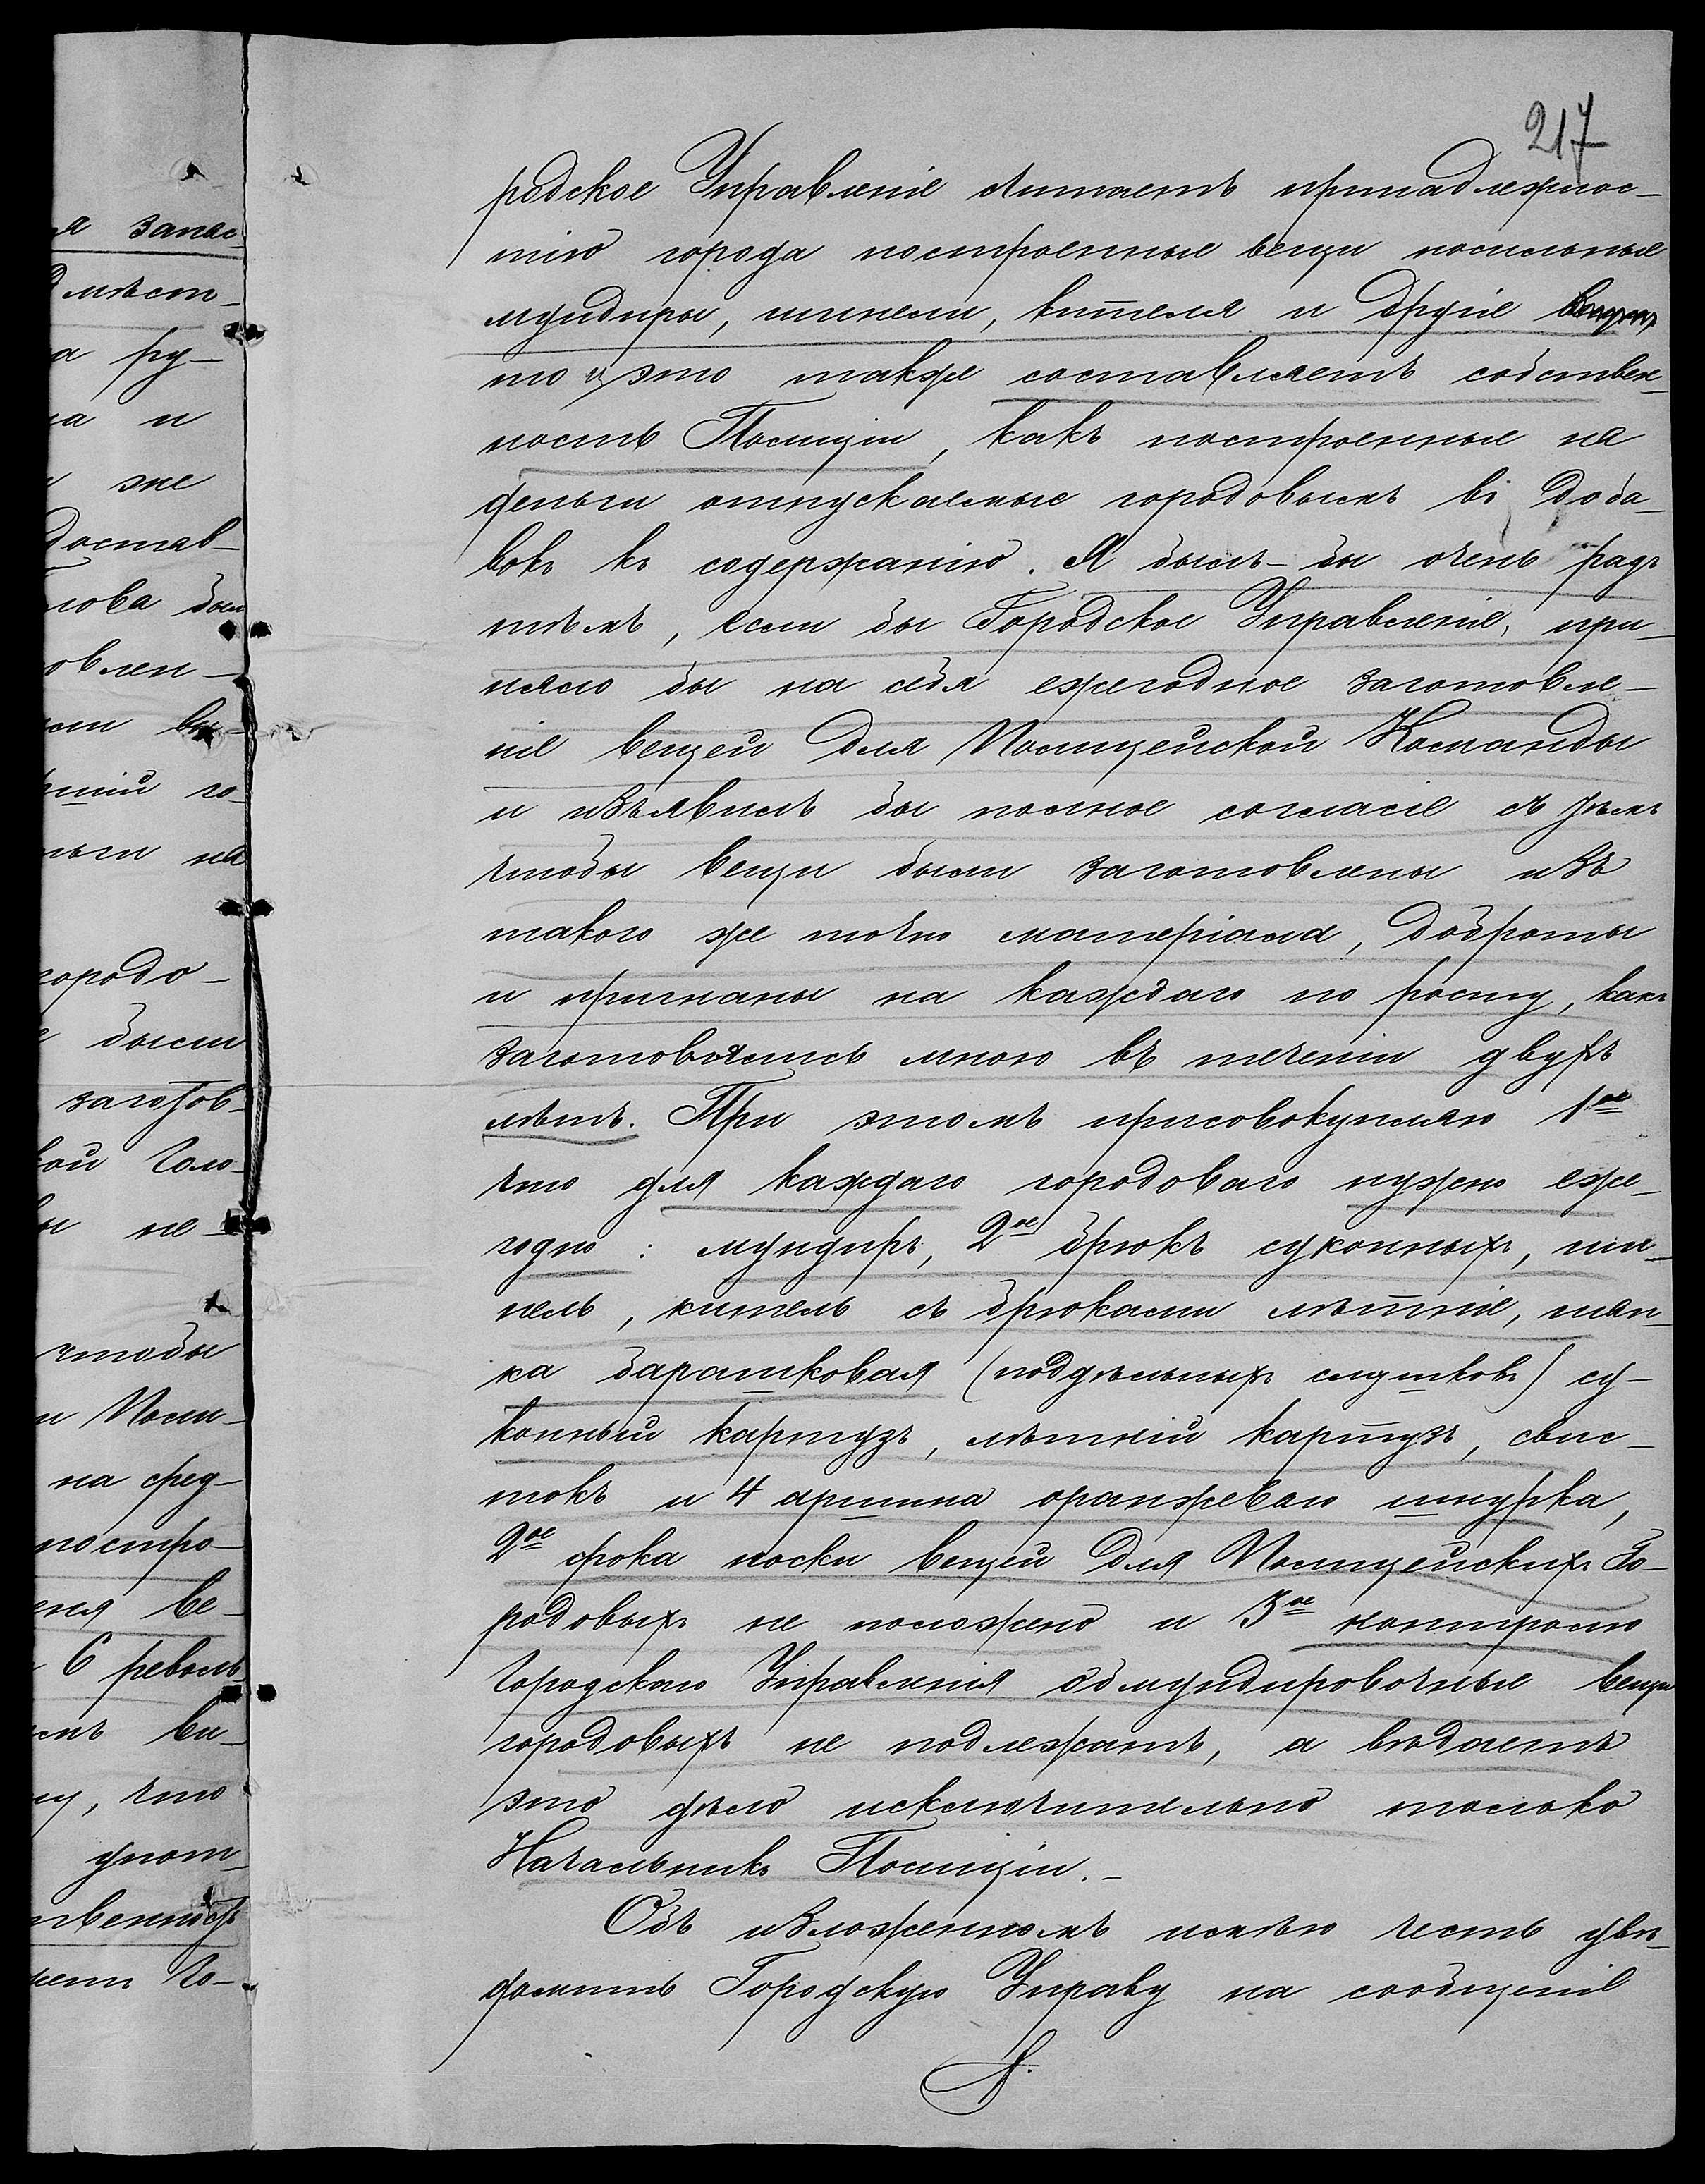 217
родское Управленіе считаетъ принадлежнос-
тію города построенные вещи носильныя
мундиры, шинели, кителя и другіе
то и это также составляетъ собствен-
ность Полиціи, какъ построенныя на
деньги отпускаемые городовымъ въ доба-
вокъ къ содержанію. Я былъ-бы очень радъ
тѣмъ, если бы Городское Управленіе, при-
няло бы на себя ежегодное заготовле-
ніе вещей для Полицейской Команды
и изъявилъ бы полное согласіе съ тѣмъ
чтобы вещи были заготовлены изъ
такого же точно матеріала, доброты
и пригнаны на каждаго по росту, какъ
заготовлялись мною въ теченіи двухъ
лѣтъ. При этомъ присовокупляю 1ое
что для каждаго городоваго нужно еже-
годно: мундиръ, 2ое брюкъ суконныхъ, ши-
нель, китель съ брюками лѣтніе, шап-
ка барашковая (поддѣльныхъ смушковъ) су-
конный картузъ, лѣтній картузъ, свис-
токъ и 4 аршина оранжеваго шнурка,
2ое срока носки вещей для Полицейскихъ Го-
родовыхъ не положено и 3ое контролю
Городскаго Управленія обмундировочные вещи
городовыхъ не подлежатъ, а вѣдаетъ
это дѣло исключительно только
Начальникъ Полиціи.-
Объ изложенномъ имѣю честь увѣ-
домить Городскую Управу на сообщеніе
а запас
Вмѣст-
а ру-
на и
эне
достав-
лова был
овлен-
ли вы-
шій го-
ньги на
городо-
были
заготов-
кой Голо-
ы не
чтобы
и Поли-
на сред-
постро-
ния ве-
6 револь
мъ ви-
му, что
упот-
твенность
жетъ Го-